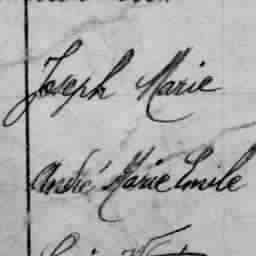 Joseph Marie
André Marie Emile